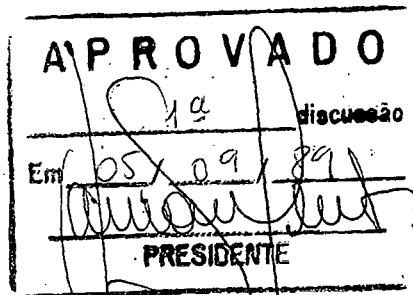 APROVADO
1ª discussão
Em 05 / 09 / 89
PRESIDENTE